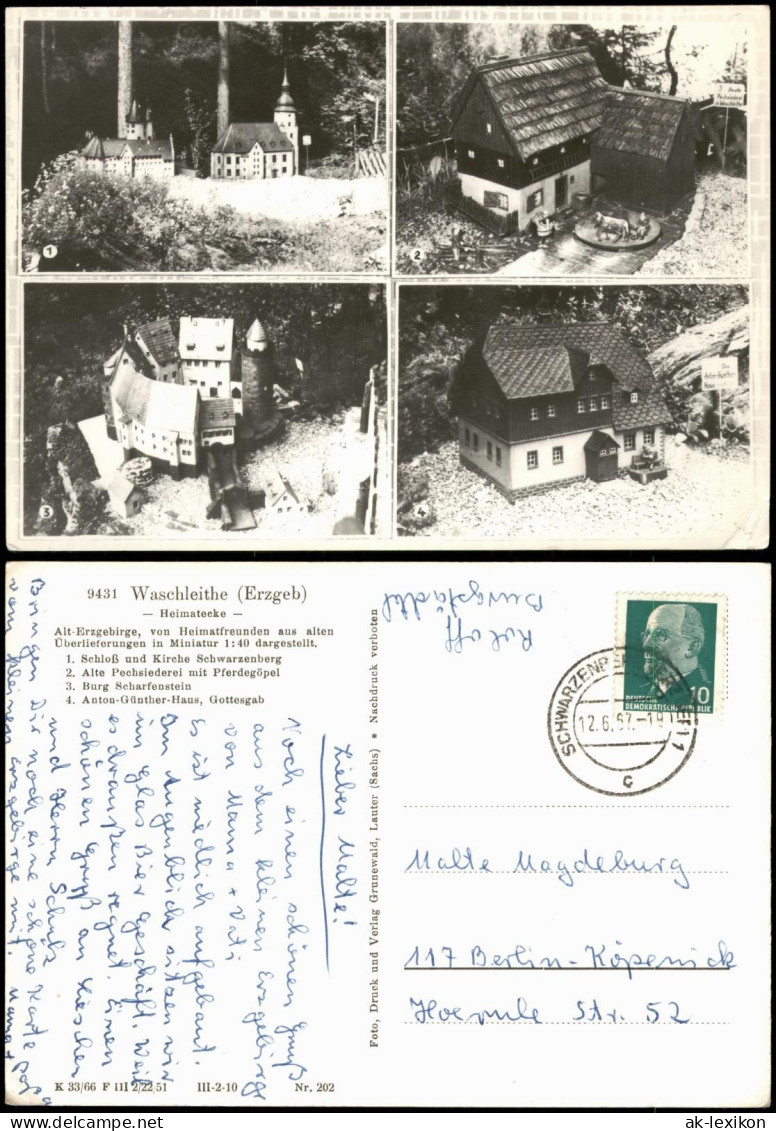 1
2
3 Alte
Pechsiederei
in Waschleithe
3
4
Das
Anton-Günther-
Haus
9431 Waschleithe (Erzgeb)
— Heimatecke —
Alt-Erzgebirge, von Heimatfreunden aus alten
Überlieferungen in Miniatur 1:40 dargestellt.
1. Schloß und Kirche Schwarzenberg
2. Alte Pechsiederei mit Pferdegöpel
3. Burg Scharfenstein
4. Anton-Günther-Haus, Gottesgab
Lieber Malte!
Noch einen schönen Gruß
aus dem kleinen Erzgebirge
von Mama + Vati
Es ist niedlich aufgebaut.
Im Augenblick sitzen wir
im Glas Bier geschäft. Weil
es draußen regnet. Einen
schönen Gruß an
und Herrn Schulz
Bringen Dir noch eine schöne Karte
vom kleinen Erzgebirge mit. Mama + Papa
K 33/66 F III 2/22 51 III-2-10 Nr. 202
Foto, Druck und Verlag Grunewald, Lauter (Sachs) * Nachdruck verboten
Burgstädtel
DEUTSCHE
DEMOKRATISCHE REPUBLIK
10
SCHWARZENBERG
12.6.67.-19
1
c
Malte Magdeburg
117 Berlin-Köpenick
Hoernle Str. 52
www.ak-ansichtskarten.de
ak-lexikon